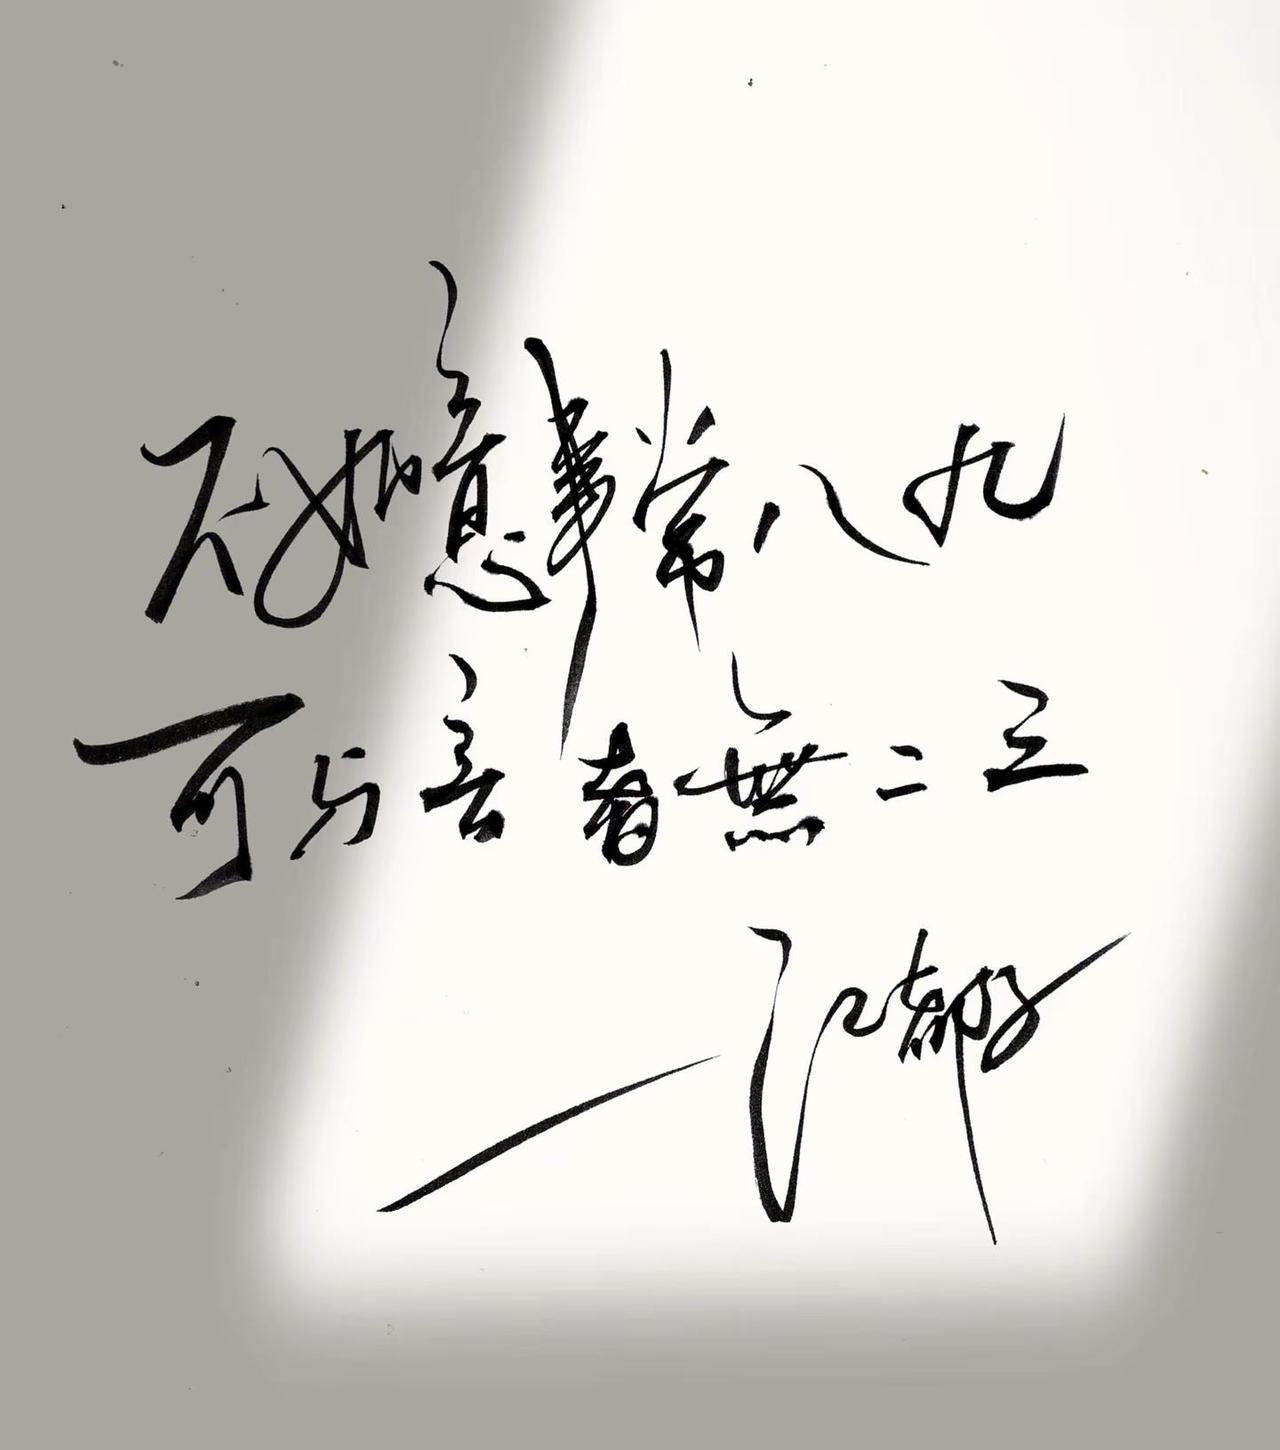 不如意事常八九
可与言者無二三